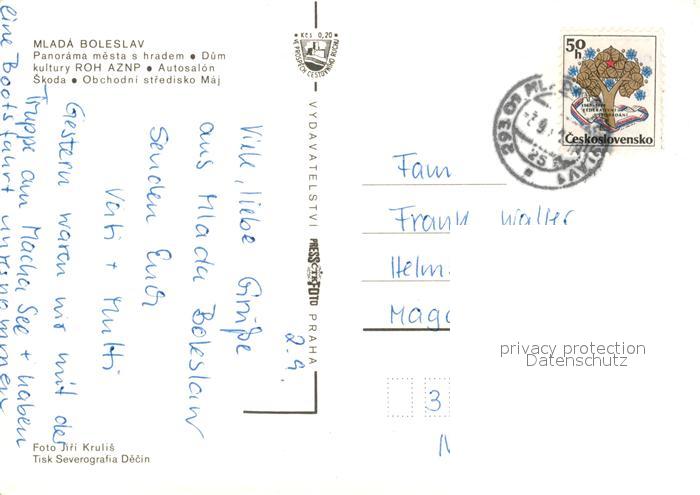 MLADÁ BOLESLAV
Panoráma města s hradem • Dům
kultury ROH AZNP • Autosalón
Škoda • Obchodní středisko Máj
Kčs 0,20
VE PROSPĚCH CESTOVNÍHO RUCHU
VYDAVATELSTVÍ PRESSFOTO PRAHA
50h
Československo
293 05
25
2.9.
Viele, liebe Grüße
aus Mlada Boleslav
Senden Euch
Vati + Mutti
Gestern waren wir mit der
Truppe am Macha See + haben
eine Bootsfahrt unternommen
Fam
Frank Walter
Helm
Mag
3
privacy protection
Datenschutz
Foto Jiří Kruliš
Tisk Severografia Děčín